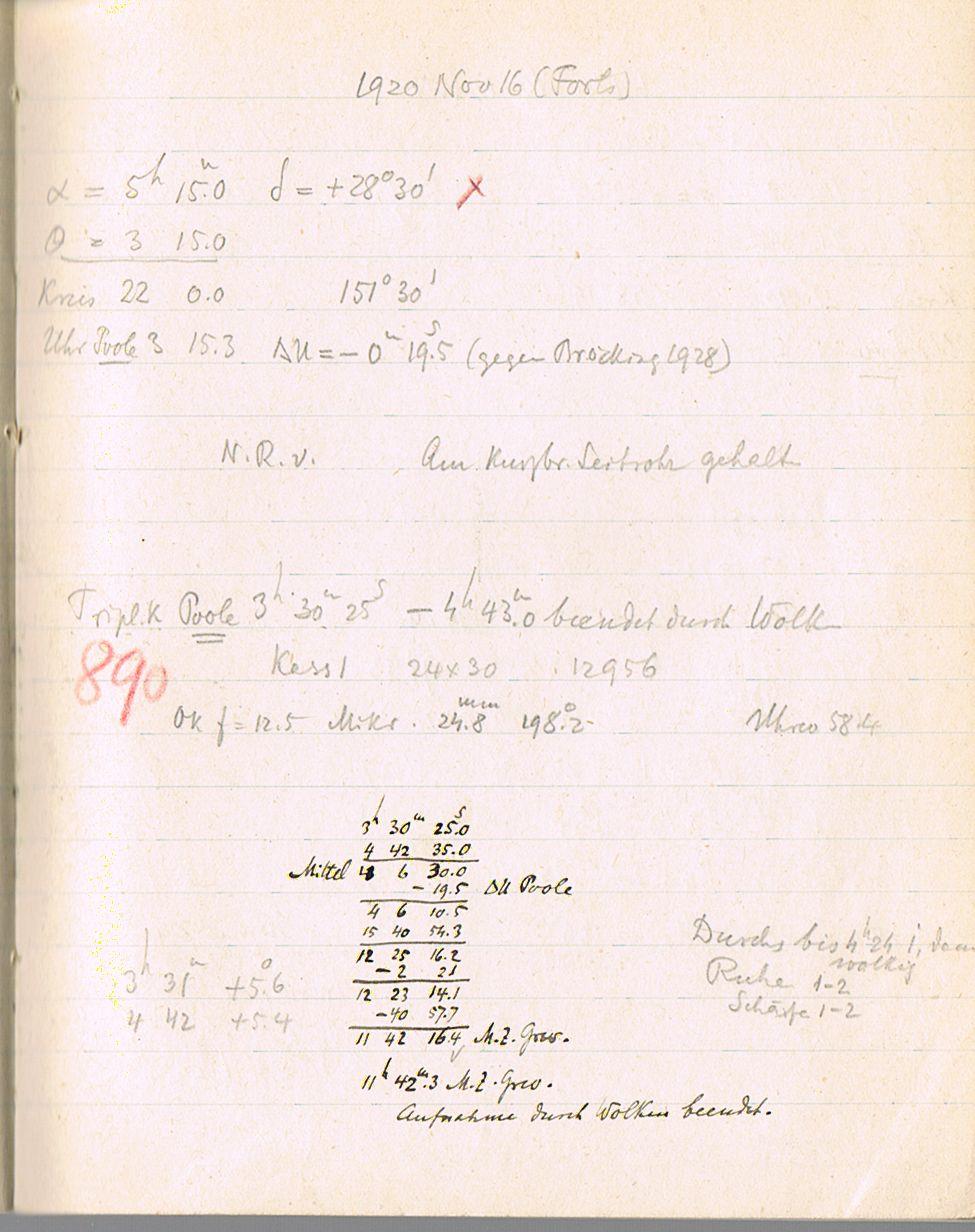 1920 Nov 16 (Forts)
α = 5h 15m.0 δ = +28°30' x
θ = 3 15.0
Kreis 22 0.0 151°30'
Uhr Poole 3 15.3 ΔU = −0m 19s.5 (gegen Bröcking 1928)
N.R.v. Am kurzbr. Leitrohr gehalt
Tripl.K Poole 3h 30m 25s − 4h 43m.0 beendet durch Wolk
890
Kass 1 24x30 12956
Ok f = 12.5 Mikr. 24.8mm 198°.2
3h 30m 25s.0
4 42 35.0
Mittel 4 6 30.0
− 19.5 ΔU Poole
4 6 10.5
15 40 54.3
12 25 16.2
− 2 2.1
12 23 14.1
−40 57.7
11 42 16.4 M.Z. Grw.
11h 42m.3 M.Z. Grw.
Aufnahme durch Wolken beendet.
3h 31m +5°.6
4 42 +5.4
Durchs bis 4h 24 1, dann
wolkig
Ruhe 1-2
Schärfe 1-2